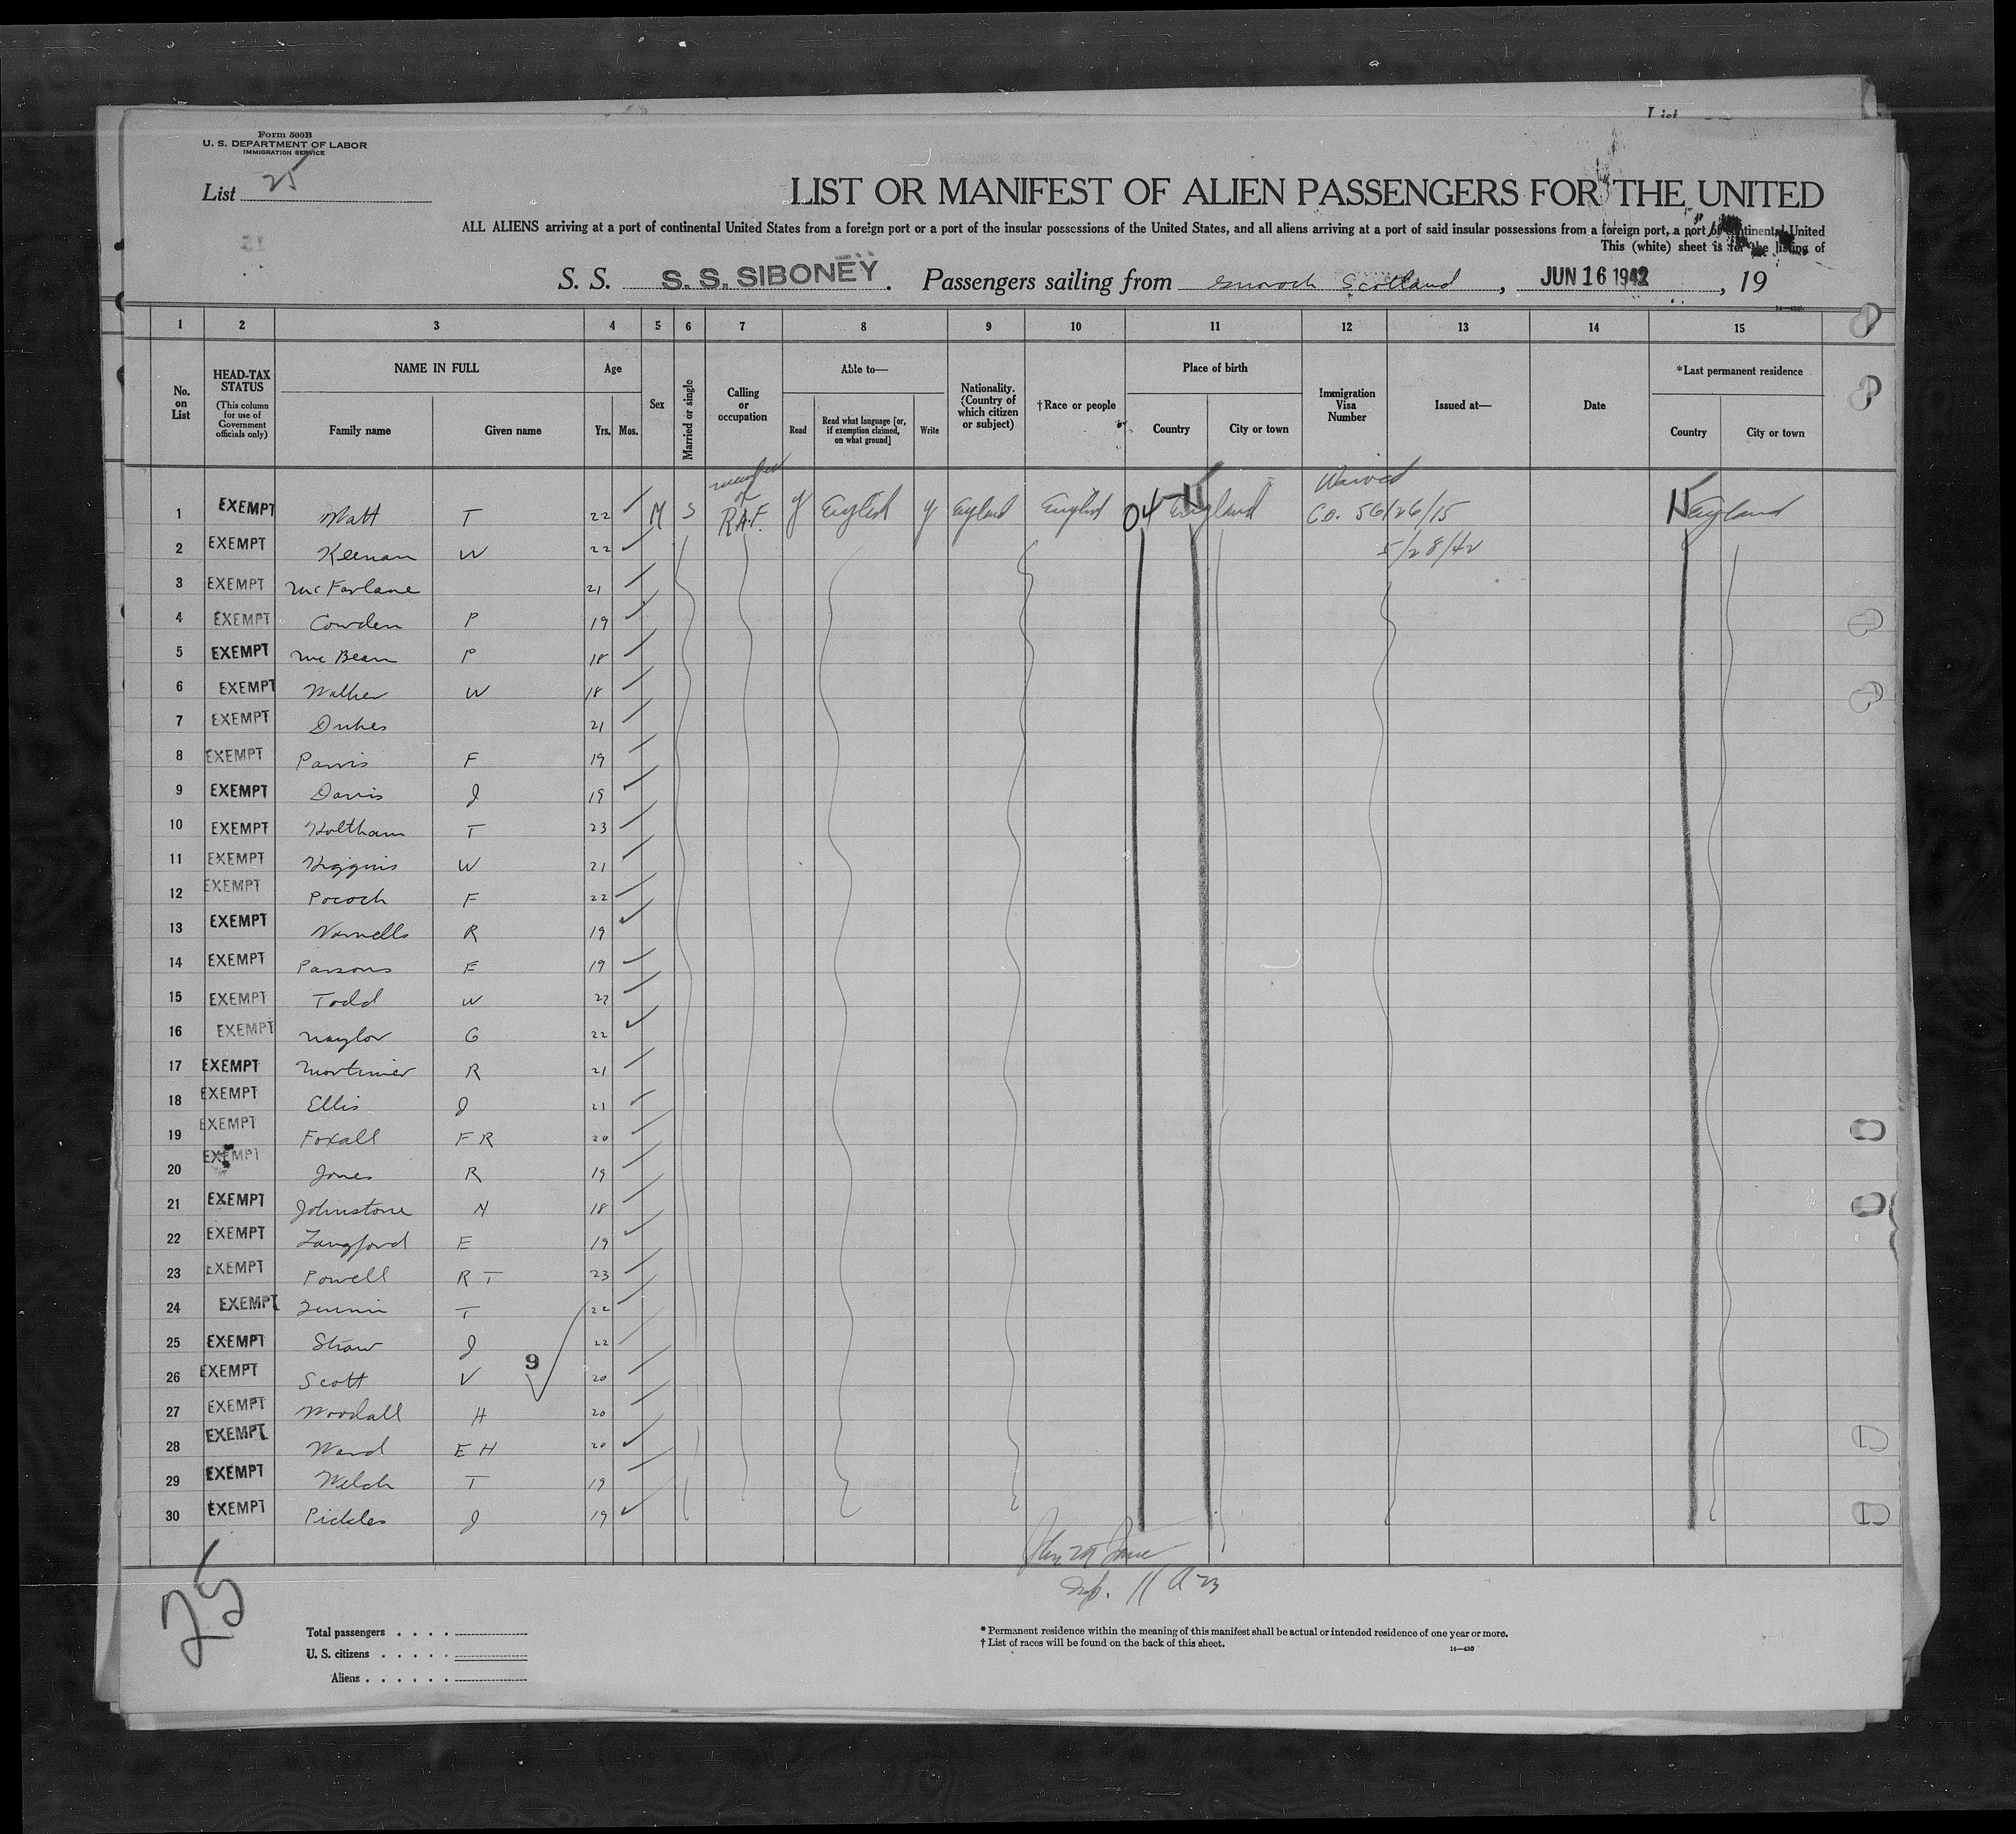 List
Form 500B
U. S. DEPARTMENT OF LABOR
IMMIGRATION SERVICE
List 25
LIST OR MANIFEST OF ALIEN PASSENGERS FOR THE UNITED
ALL ALIENS arriving at a port of continental United States from a foreign port or a port of the insular possessions of the United States, and all aliens arriving at a port of said insular possessions from a foreign port, a port of continental United
This (white) sheet is for the listing of
S. S. S. S. SIBONEY. Passengers sailing from Scotland, JUN 16 1942, 19
1 2 3 4 5 6 7 8 9 10 11 12 13 14 15
No. on List
HEAD-TAX STATUS (This column for use of Government officials only)
NAME IN FULL
Family name Given name
Age
Yrs. Mos.
Sex
Married or single
Calling or occupation
Able to—
Read Read what language [or, if exemption claimed, on what ground] Write
Nationality. (Country of which citizen or subject)
†Race or people
Place of birth
Country City or town
Immigration Visa Number
Issued at—
Date
*Last permanent residence
Country City or town
member Waived
1 EXEMPT Matt T 22 M S R.A.F. y English y England English 04 England C.O. 56/26/15 England
2 EXEMPT Keenan W 22 5/28/42
3 EXEMPT McFarlane 21
4 EXEMPT Cowden P 19
5 EXEMPT McBean P 18
6 EXEMPT Walker W 18
7 EXEMPT Dukes 21
8 EXEMPT F 19
9 EXEMPT Davis J 19
10 EXEMPT Holtham T 23
11 EXEMPT Higgins W 21
12 EXEMPT Pocock F 22
13 EXEMPT Varnells R 19
14 EXEMPT Parsons E 19
15 EXEMPT Todd W
16 EXEMPT Naylor G 22
17 EXEMPT Mortimer R 21
18 EXEMPT Ellis J 21
19 EXEMPT Foxall F R 20
20 EXEMPT Jones R 19
21 EXEMPT Johnstone N 18
22 EXEMPT Langford E 19
23 EXEMPT Powell R T 23
24 EXEMPT T 22
25 EXEMPT Shaw J 22
9
26 EXEMPT Scott V 20
27 EXEMPT Woodall H 20
28 EXEMPT Ward E H 20
29 EXEMPT Welch T 19
30 EXEMPT Pickles J 19
25
Total passengers
U. S. citizens
Aliens
* Permanent residence within the meaning of this manifest shall be actual or intended residence of one year or more.
† List of races will be found on the back of this sheet.
14—430